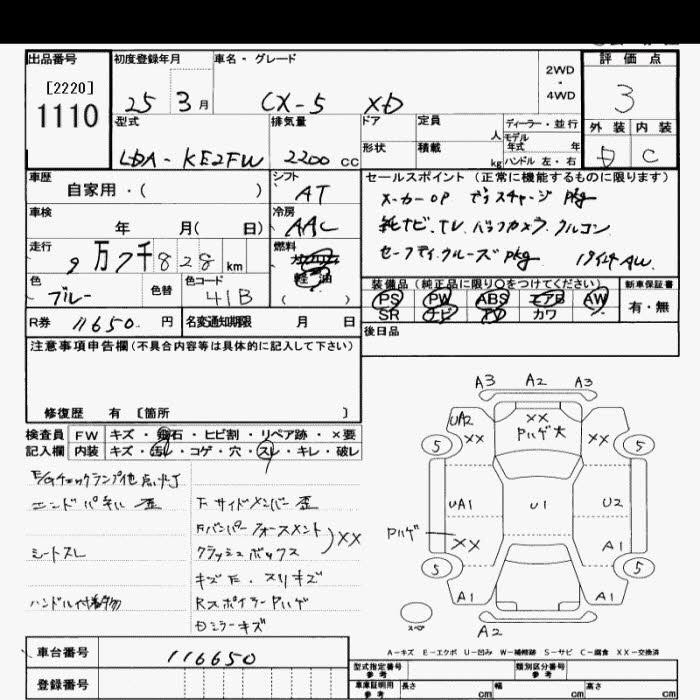 出品番号 初度登録年月 車名・グレード 2WD ・ 4WD 評価点
[2220]
1110
25 3月 CX-5 XD 3
型式 排気量 ドア 定員 人 ディーラー・並行 外装 内装
モデル年式 年
LDA-KE2FW 2200 cc 形状 積載 kg ハンドル 左・右 D C
車歴 シフト セールスポイント (正常に機能するものに限ります)
自家用・( ) AT メーカーOP ディスチャージ pkg
車検 冷房 純ナビ.TV.バックカメラ.クルコン
年 月( 日) AAC セーフティ.クルーズ pkg 19インチAW.
走行 燃料
9万7千828km ガソリン 軽・油 ( )
色 色替 色コード 装備品 (純正品に限り○をつけてください) 新車保証書
ブルー 41B PS PW ABS エアB AW 有・無
SR ナビ TV カワ
R券 11650 円 名変通知期限 月 日 後日品
注意事項申告欄(不具合内容等は具体的に記入して下さい)
修復歴 有 [箇所 ]
検査員 FW キズ・飛石・ヒビ割・リペア跡・×要
記入欄 内装 キズ・汚れ・コゲ・穴・スレ・キレ・破レ
E/Gチェックランプ他点灯
エンドパネル 歪 Fサイドメンバー 歪
Fバンパーフォースメント
シートスレ クラッシュボックス )XX
キズE.スリキズ
ハンドル付着物 Rスポイラー Pハゲ
Dミラーキズ
A3 A2 A3
UA2 XX XX Pハゲ大 XX
5 5
UA1 U1 U2
Pハゲ XX A1
5 5
A1 A1
スペア A2
A-キズ E-エクボ U-凹み W-補修跡 S-サビ C-腐食 XX-交換済
車台番号 116650
登録番号
型式指定番号 参考 類別区分番号 参考
車庫証明用 参考 長さ cm 幅 cm 高さ cm